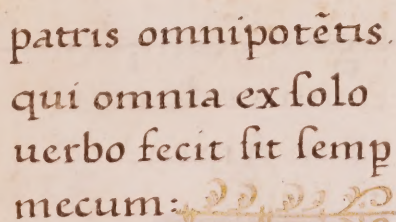 patris omnipotẽtis.
qui omnia ex ſolo
uerbo fecit ſit ſemꝑ
mecum: